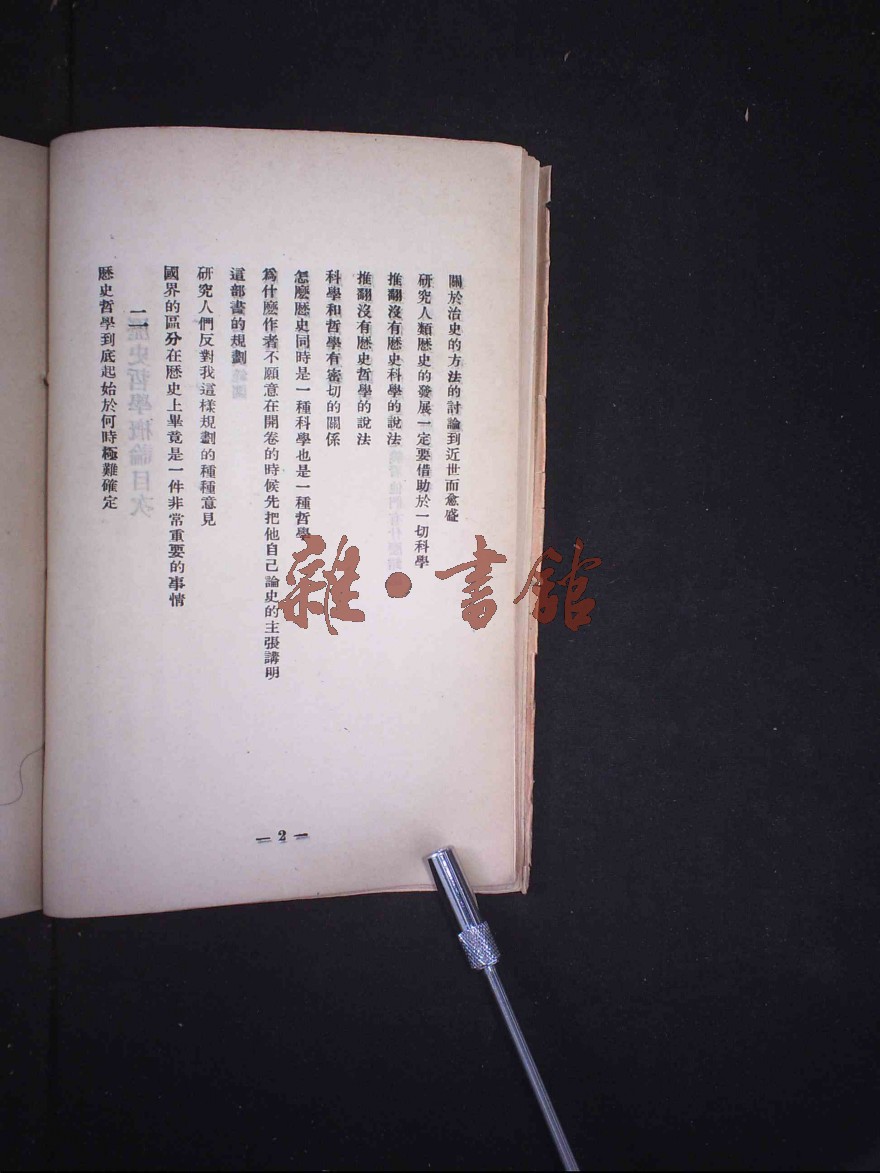 關於治史的方法的討論到近世而愈盛
研究人類歷史的發展一定要借助於一切科學
推翻沒有歷史科學的說法
推翻沒有歷史哲學的說法
科學和哲學有密切的關係
怎麼歷史同時是一種科學也是一種哲學
爲什麼作者不願意在開卷的時候先把他自己論史的主張講明
這部書的規劃
研究人們反對我這樣規劃的種種意見
國界的區分在歷史上畢竟是一件非常重要的事情
二
歷史哲學到底起始於何時極難確定
— 2 —
雜·書館